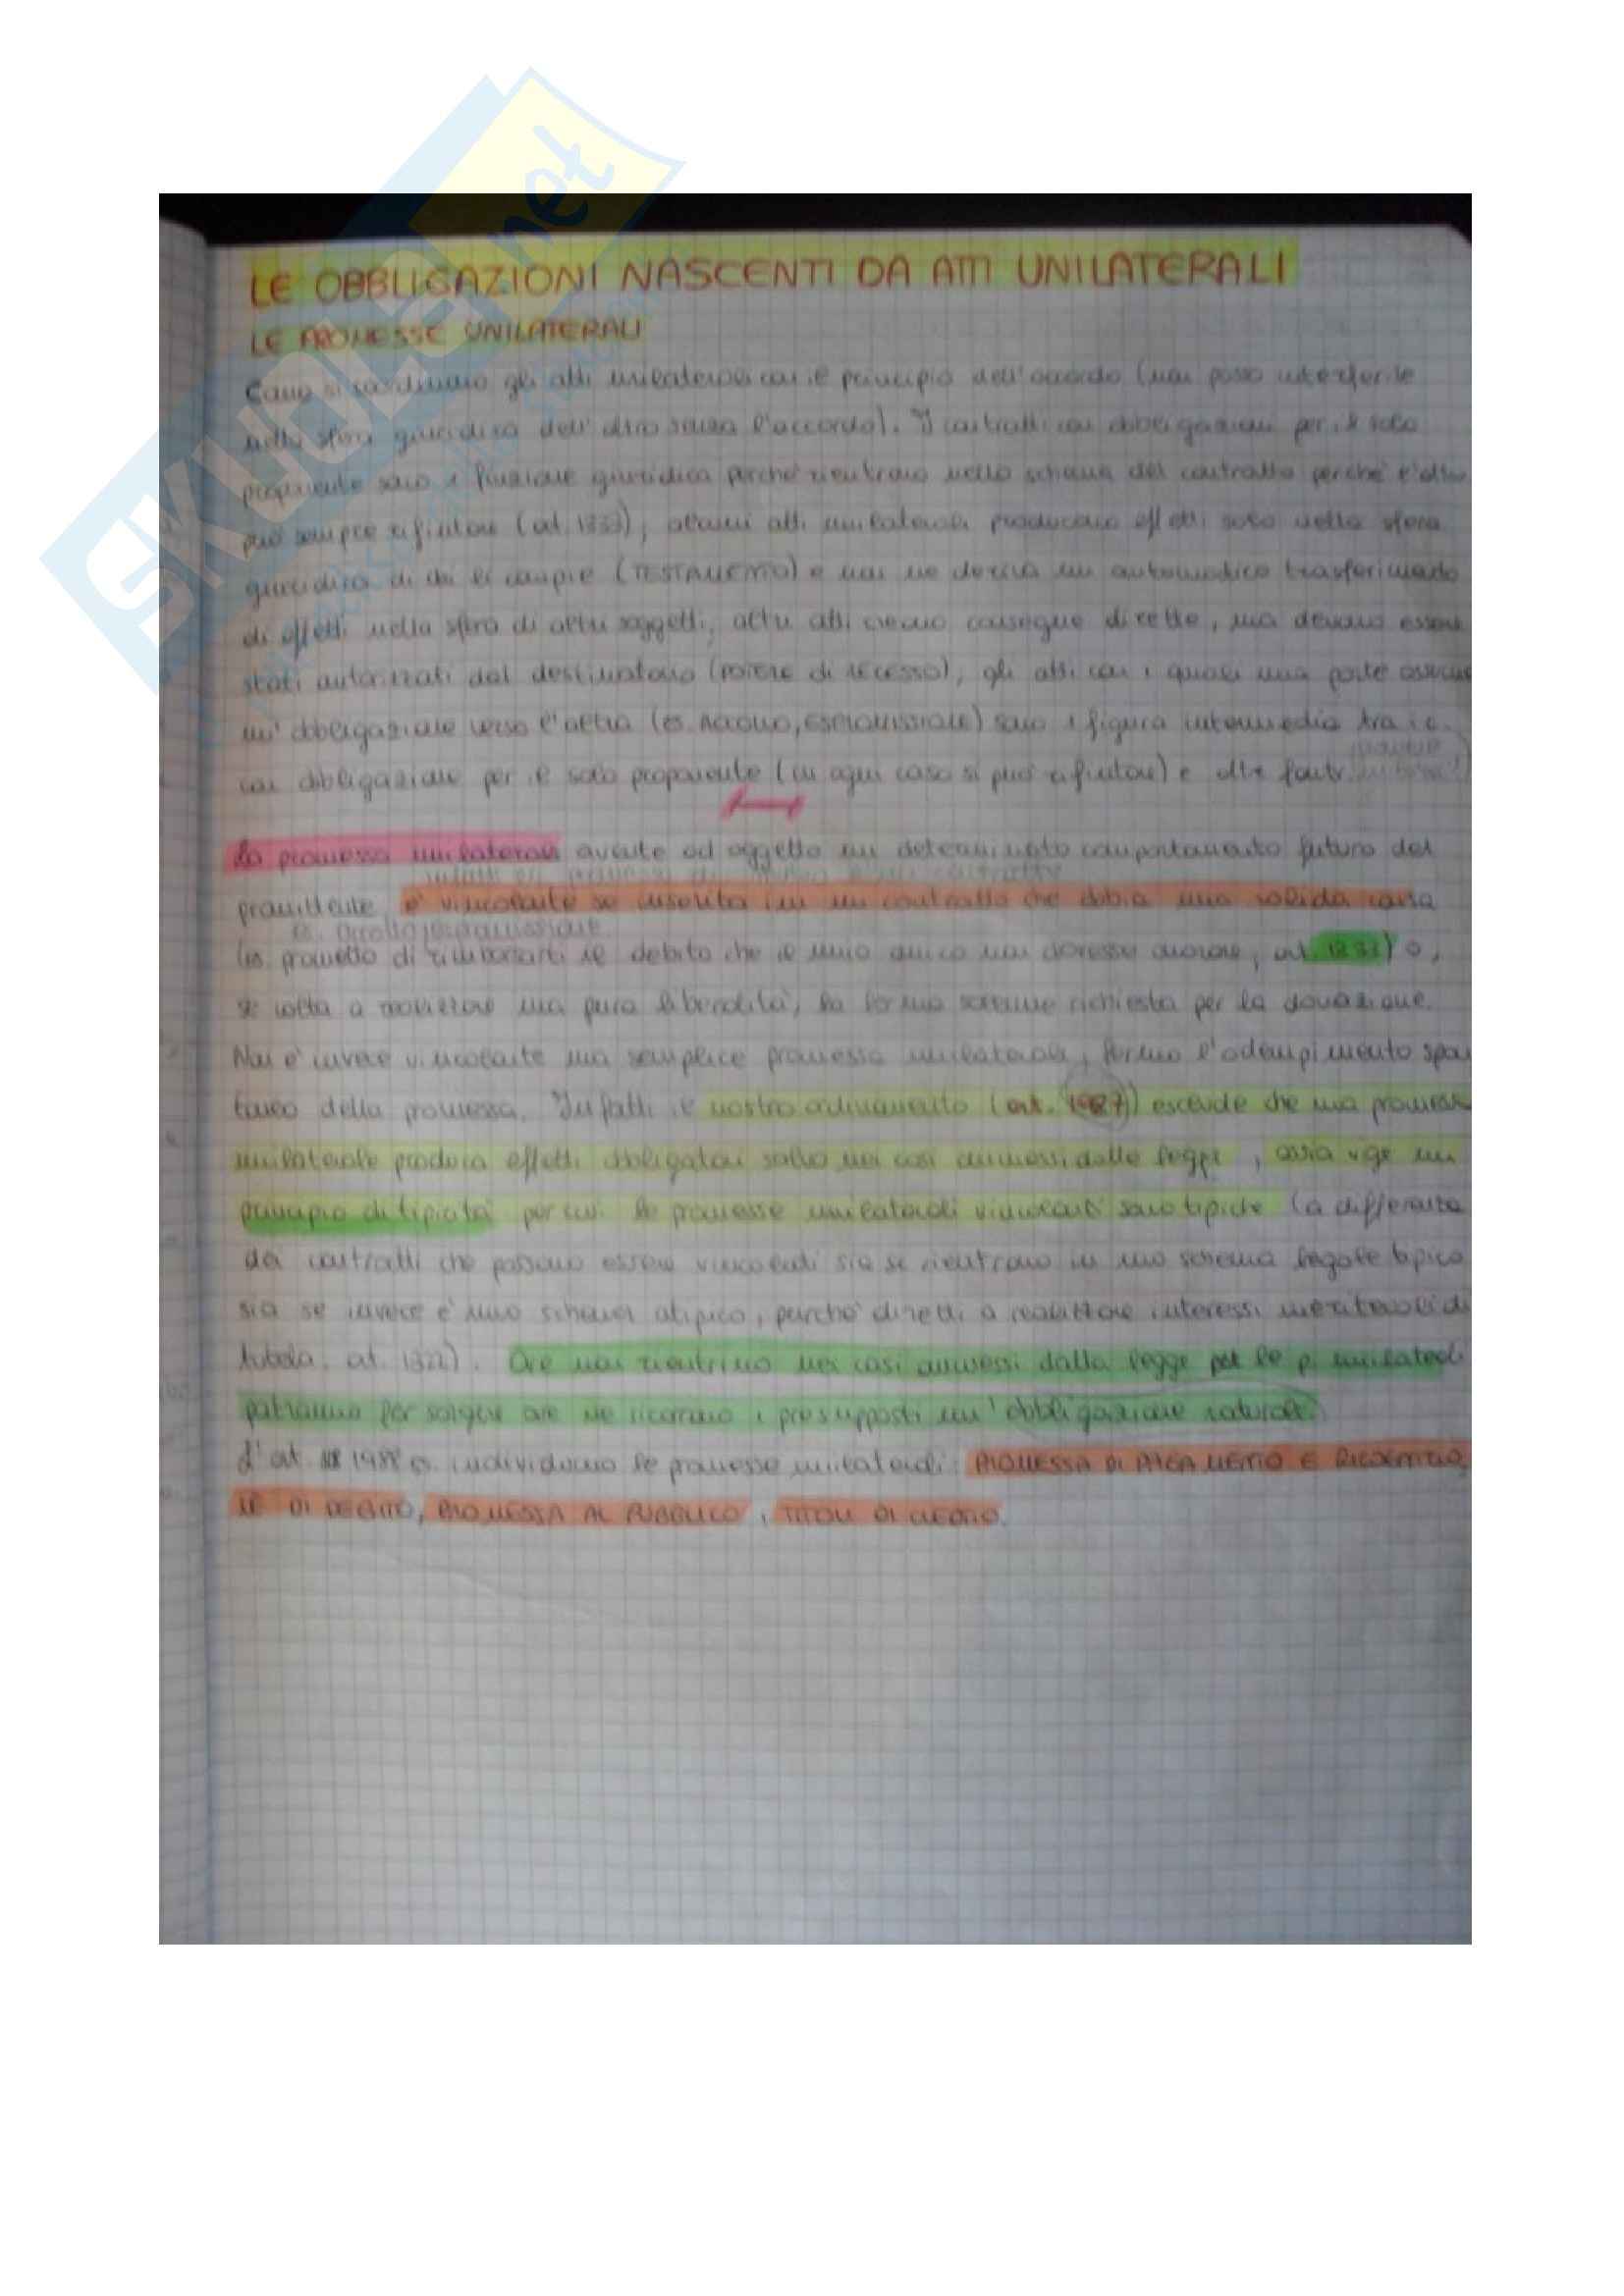 SKUOLA.net
LE OBBLIGAZIONI NASCENTI DA ATTI UNILATERALI
LE PROMESSE UNILATERALI
Come si coordinano gli atti unilaterali con il principio dell'accordo (non posso interferire
nella sfera giuridica dell'altro senza l'accordo). I contratti con obbligazioni per il solo
proponente sono 1 finzione giuridica perché rientrano nello schema del contratto perché l'altro
può sempre rifiutare (art. 1333), alcuni atti unilaterali producono effetti solo nella sfera
giuridica di chi li compie (TESTAMENTO) e non ne deriva un automatico trasferimento
di effetti nella sfera di altri soggetti, altri atti creano consegue dirette, ma devono essere
stati autorizzati dal destinatario (POTERE DI RECESSO), gli atti con i quali una parte assume
un'obbligazione verso l'altra (es. ACCOLLO, ESPROMISSIONE) sono 1 figura intermedia tra i c.
con obbligazione per il solo proponente (in ogni caso si può rifiutare) e altre fonti
La promessa unilaterale avente ad oggetto un determinato comportamento futuro del
promittente è vincolante se inserita in un contratto che abbia una solida causa
es. accollo, espromissione
(es. prometto di rimborsarti il debito che il mio amico non dovesse onorare, art. ) o,
se volta a realizzare una pura liberalità, la forma solenne richiesta per la donazione.
Non è invece vincolante una semplice promessa unilaterale, fermo l'adempimento spon
taneo della promessa. Infatti il nostro ordinamento (art. 1987) esclude che una promessa
unilaterale produca effetti obbligatori salvo nei casi ammessi dalla legge, ossia vige un
principio di tipicità per cui le promesse unilaterali vincolanti sono tipiche (a differenza
dei contratti che possono essere vincolanti sia se rientrano in uno schema legale tipico
sia se invece è uno schema atipico, purché diretti a realizzare interessi meritevoli di
tutela, art. 1322). Ove non rientrino nei casi ammessi dalla legge le p. unilaterali
potranno far sorgere ove ne ricorrano i presupposti un'obbligazione naturale.
L'art. 1988 individuano le promesse unilaterali: PROMESSA DI PAGAMENTO E RICOGNIZIO
NE DI DEBITO, PROMESSA AL PUBBLICO, TITOLI DI CREDITO.